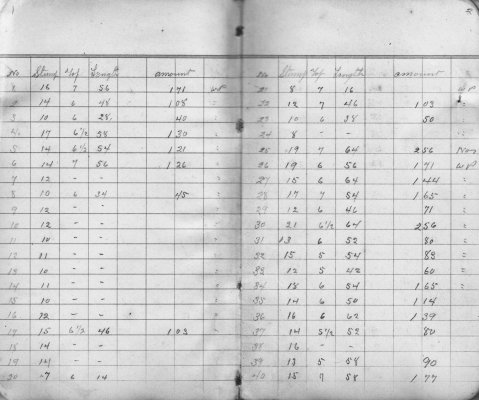 No Stump Top Length amount
1 16 7 56 171 WP
2 14 6 48 108 "
3 10 6 28 40 "
4 17 6½ 38 130 "
5 14 6½ 54 121 "
6 14 7 56 126 "
7 12 - - "
8 10 6 34 45 "
9 12 - -
10 12 - - "
11 10 - - "
12 11 - - "
13 10 - - "
14 11 - - "
15 10 - - "
16 12 - - "
17 15 6½ 46 103 "
18 14 - -
19 14 - -
20 7 6 14
No Stump Top Length amount
21 8 7 16 WP
22 12 7 46 103 "
23 10 6 38 50 "
24 8 - - "
25 19 7 64 256
26 19 6 56 171 WP
27 15 6 64 144 "
28 17 7 54 165 "
29 12 6 46 71 "
30 21 6½ 64 256 "
31 13 6 52 80 "
32 15 5 54 83 "
33 12 5 42 60 "
34 18 6 54 165 "
35 14 6 50 114
36 16 6 62 139
37 14 5½ 52 80
38 16 - -
39 13 5 58 90
40 15 7 58 177